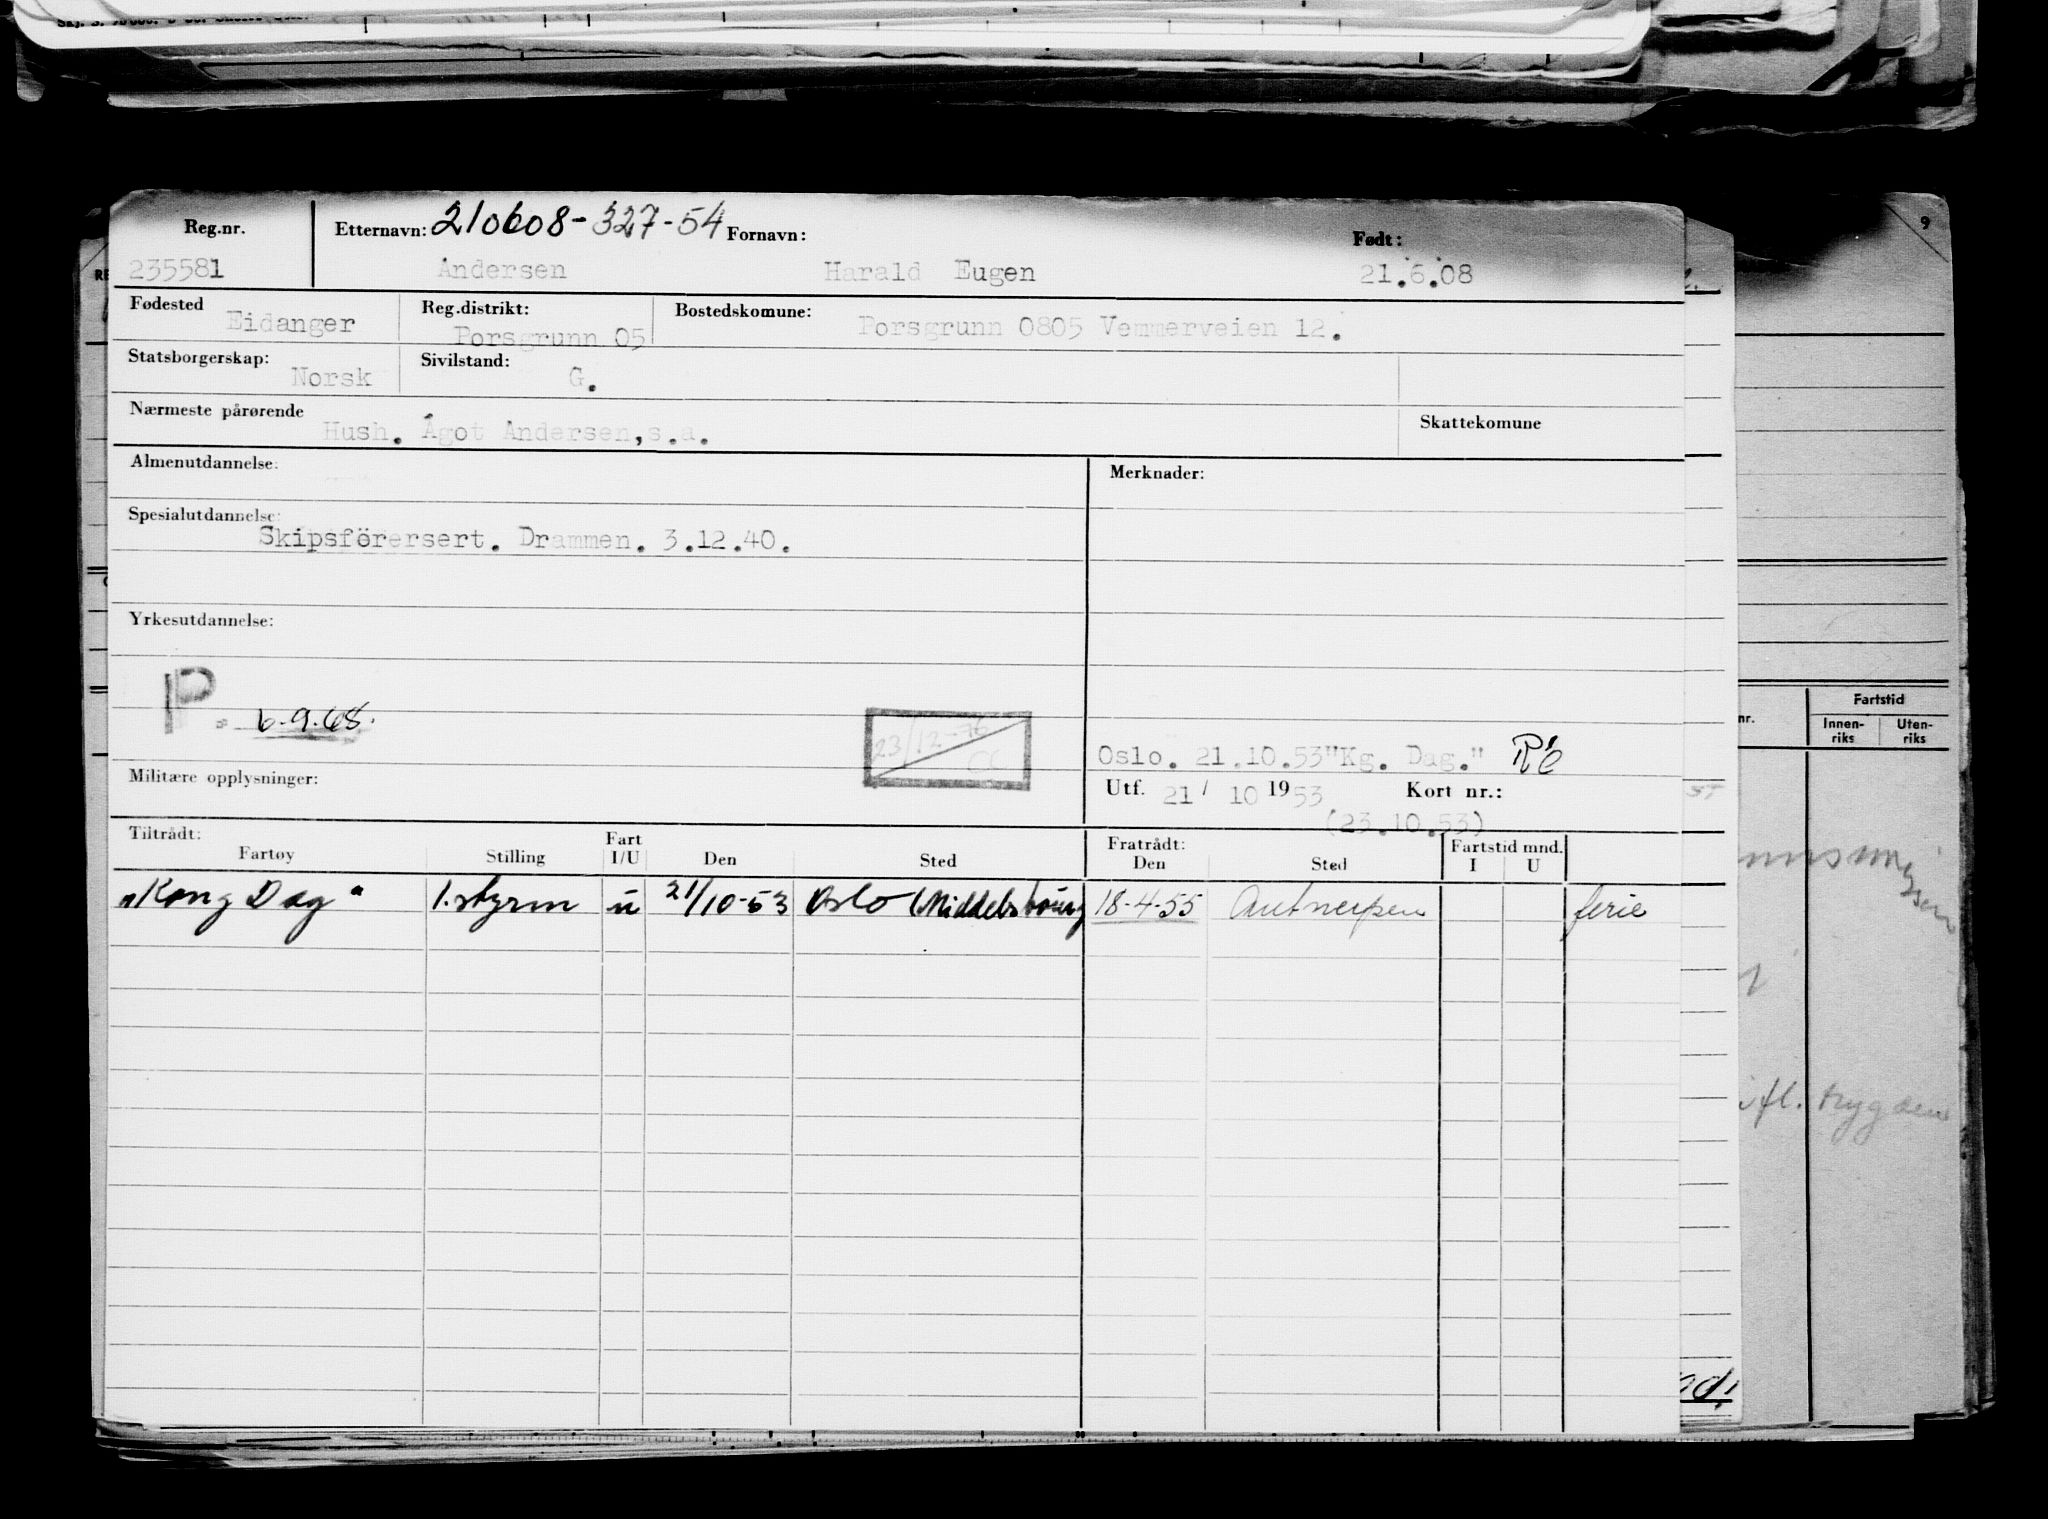 Reg.nr. Etternavn: 210608-327-54 Fornavn: Født:
235581 Andersen Harald Eugen 21.6.08
Fødested Eidanger Reg.distrikt: Porsgrunn 05 Bostedskomune: Porsgrunn 0805 Vemmerveien 12.
Statsborgerskap: Norsk Sivilstand: G.
Nærmeste pårørende Hush. Ågot Andersen, s.a. Skattekomune
Almenutdannelse: Merknader:
Spesialutdannelse:
Skipsförersert. Drammen. 3.12.40.
Yrkesutdannelse:
P. 6.9.68.
23/12-76
Oslo. 21.10.53 "Kg. Dag."
Militære opplysninger: Utf. 21/ 10 1953 Kort nr.:
(23.10.53)
Tiltrådt: Fart Fratrådt: Fartstid mnd.
Fartøy Stilling I/U Den Sted Den Sted I U
"Kong Dag" 1.styrm u 21/10-53 Oslo (Middelsbourg 18-4-55 Antwerpen ferie
9
nr. Fartstid
Innen-riks Uten-riks
fl. trygden